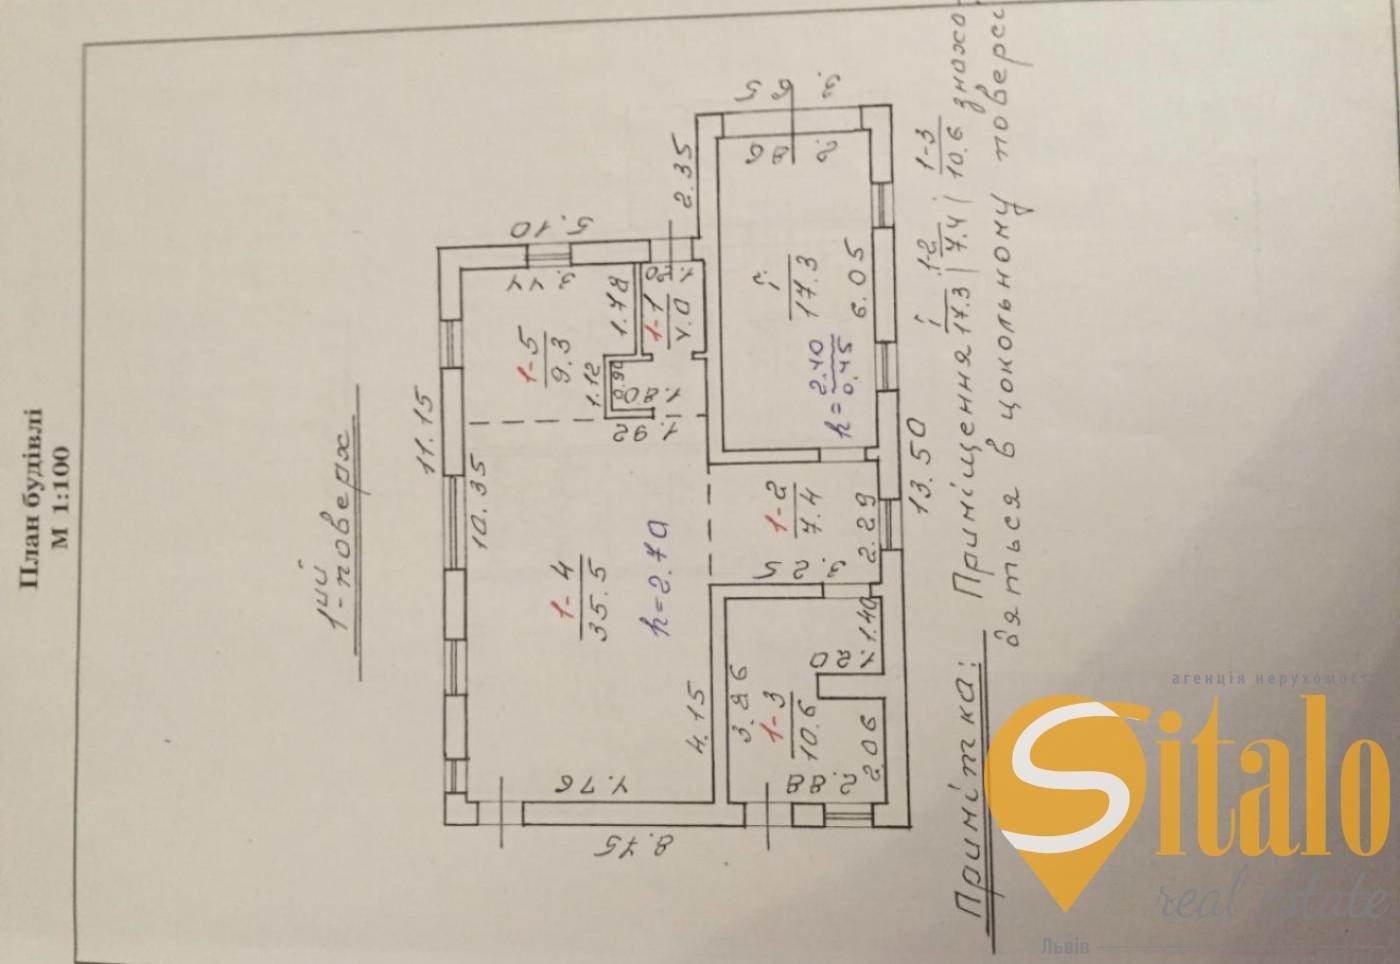 План будівлі
М 1:100
1ий
- поверх
11.15
10.35
5.10
3.44
1-5
9.3
1.78
1.12
0.90
1.80
1.92
1-1
4.0
1.50
2.35
1-4
35.5
h=2.70
4.76
8.45
4.15
1-2
7.4
3.25
2.29
1-3
10.6
3.86
2.88
2.06
1.20
1.40
І
17.3
6.05
h= 2.40
0.45
2.86
13.50
Примітка: Приміщення І 17.3; 1-2 7.4; 1-3 10.6 знахо
дяться в цокольному поверсі
агенція нерухомості
Sitalo
real estate
Львів